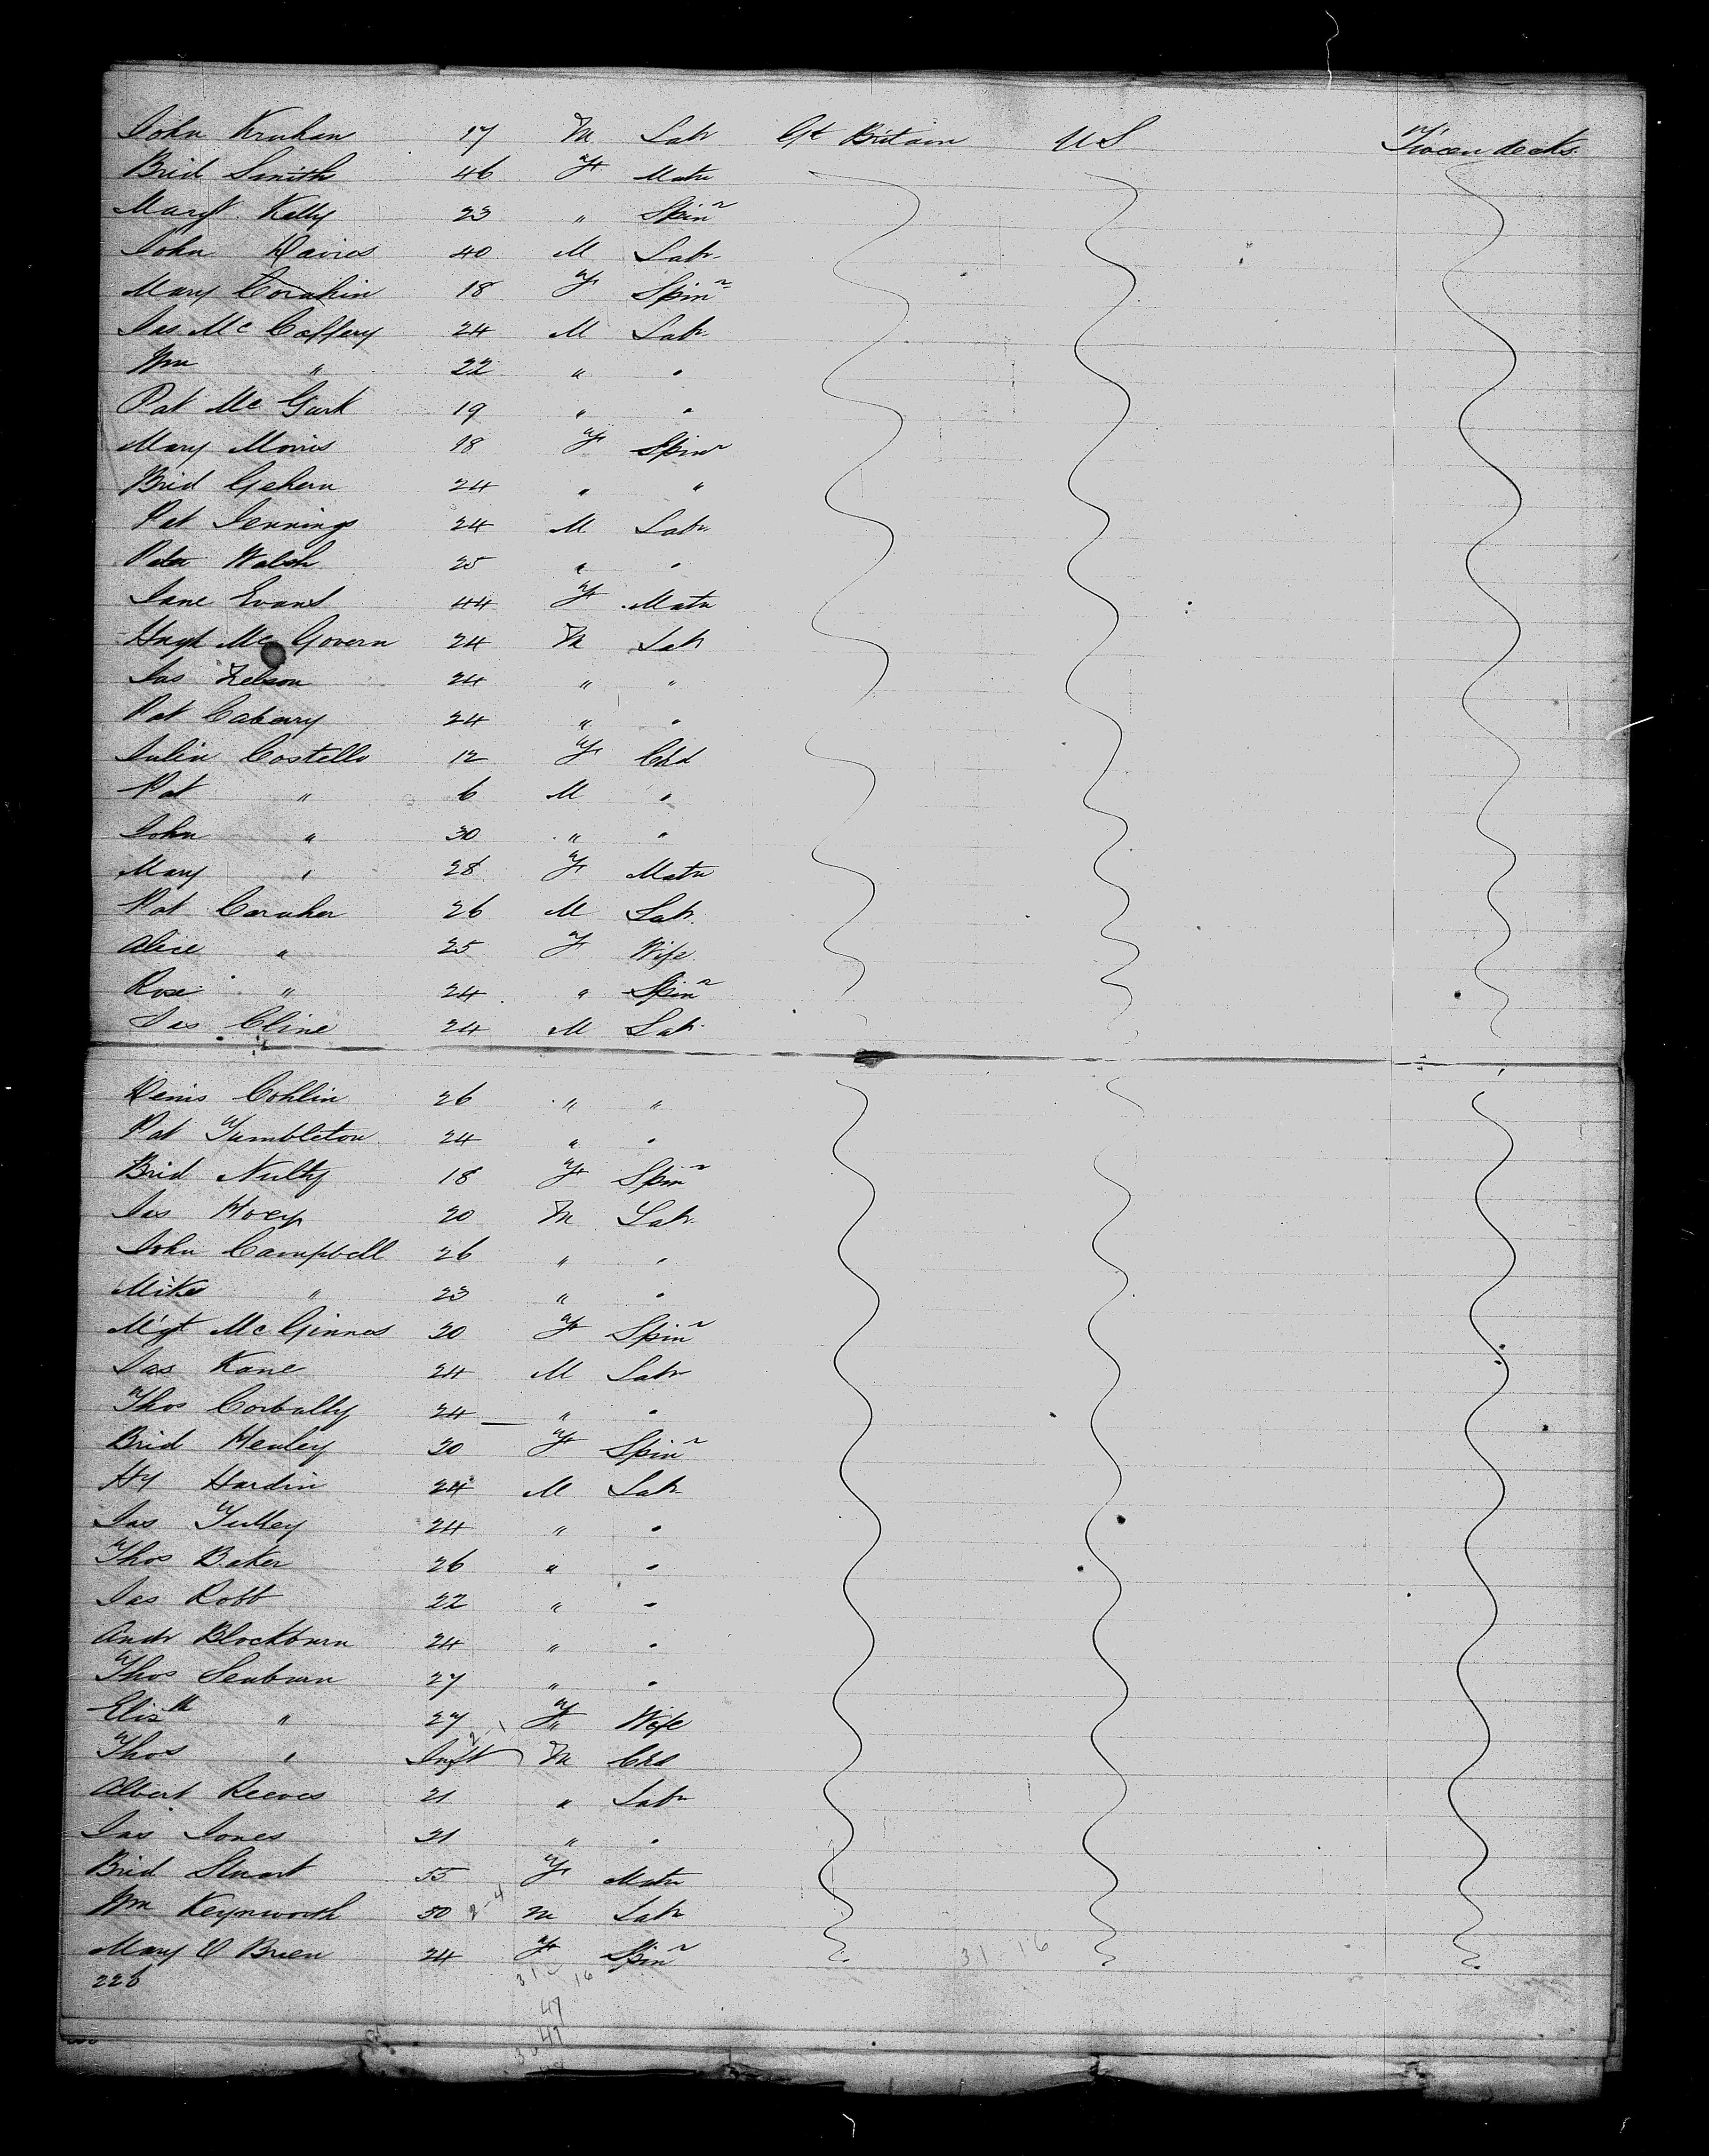 John Kruhan 17 M Labr Gt Britain US Tween decks
Brid Smith 46 F Matn
Margt Kelly 23 " Spinr
John Davies 40 M Labr
Mary 18 F Spinr
Jas McCaffery 24 M Labr
Wm " 22 " "
Pat McGurk 19 " "
Mary Morris 18 F Spinr
Brid Gehern 24 " "
Pat Jennings 24 M Labr
Peter Walsh 25 " "
Jane Evans 44 F Matn
Hugh McGovern 24 M Labr
Jas Nelson 24 " "
Pat 24 " "
Julia Costello 12 F Chd
Pat " 6 M "
John " 30 " "
Mary " 28 F Matn
Pat Caraher 26 M Labr
Alice " 25 F Wife
Rose " 24 " Spinr
Jas Cline 24 M Labr
Denis Cohlin 26 " "
Pat Tumbleton 24 " "
Brid Nulty 18 F Spinr
Jas Hoey 20 M Labr
John Campbell 26 " "
Mike " 23 " "
Mgt McGinnes 20 F Spinr
Jas Kane 24 M Labr
Thos Corbally 24 " "
Brid Henley 20 F Spinr
Hy Hardin 24 M Labr
Jas Tulley 24 " "
Thos Baker 26 " "
Jas Robb 22 " "
Andr Blackburn 24 " "
Thos Seaburn 27 " "
Elizth " 27 F Wife
Thos " Inft M Chd
Albert Reeves 21 " Labr
Jas Jones 21 " "
Brid Stuart 55 F Matn
Wm Keynworth 50 2-4 M Labr
Mary O Brien 24 F Spinr 31 16
226 31 16
47
47